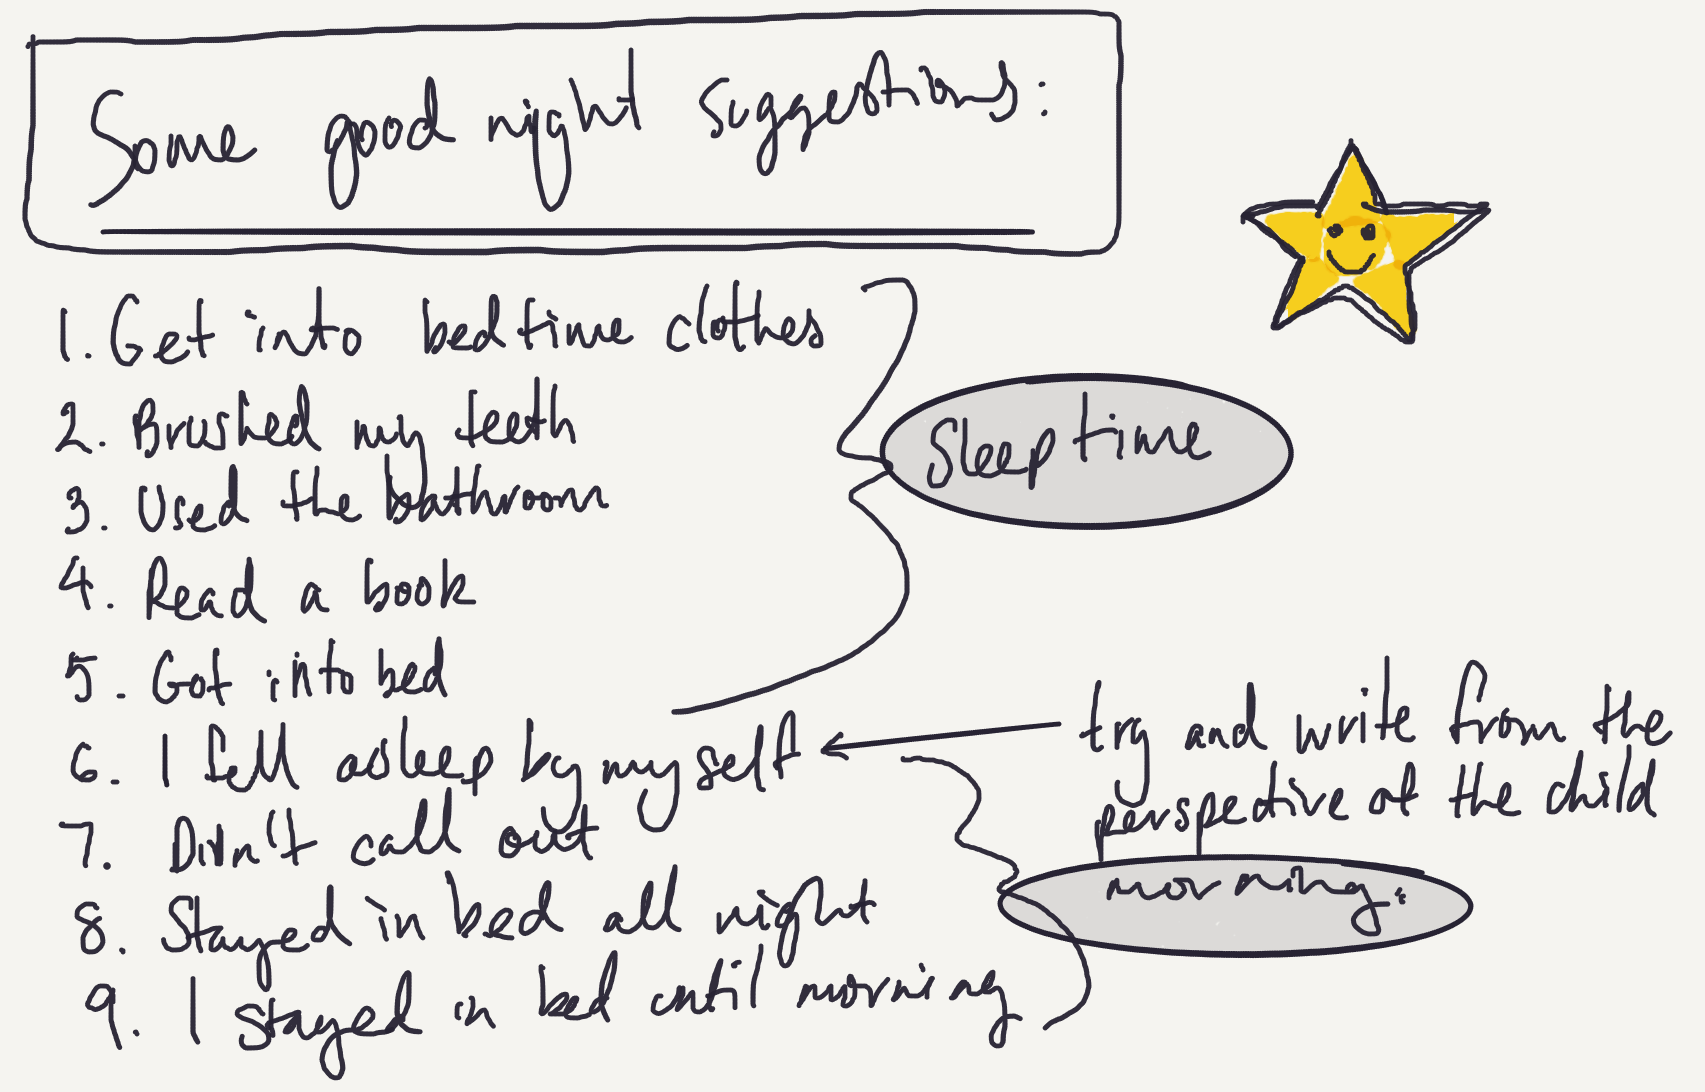 Some good night suggestions:
1. Get into bedtime clothes
2. Brushed my teeth
3. Used the bathroom
4. Read a book
5. Got into bed
6. I fell asleep by myself
7. Didn't call out
8. Stayed in bed all night
9. I stayed in bed until morning
Sleep time
try and write from the
perspective of the child
morning.